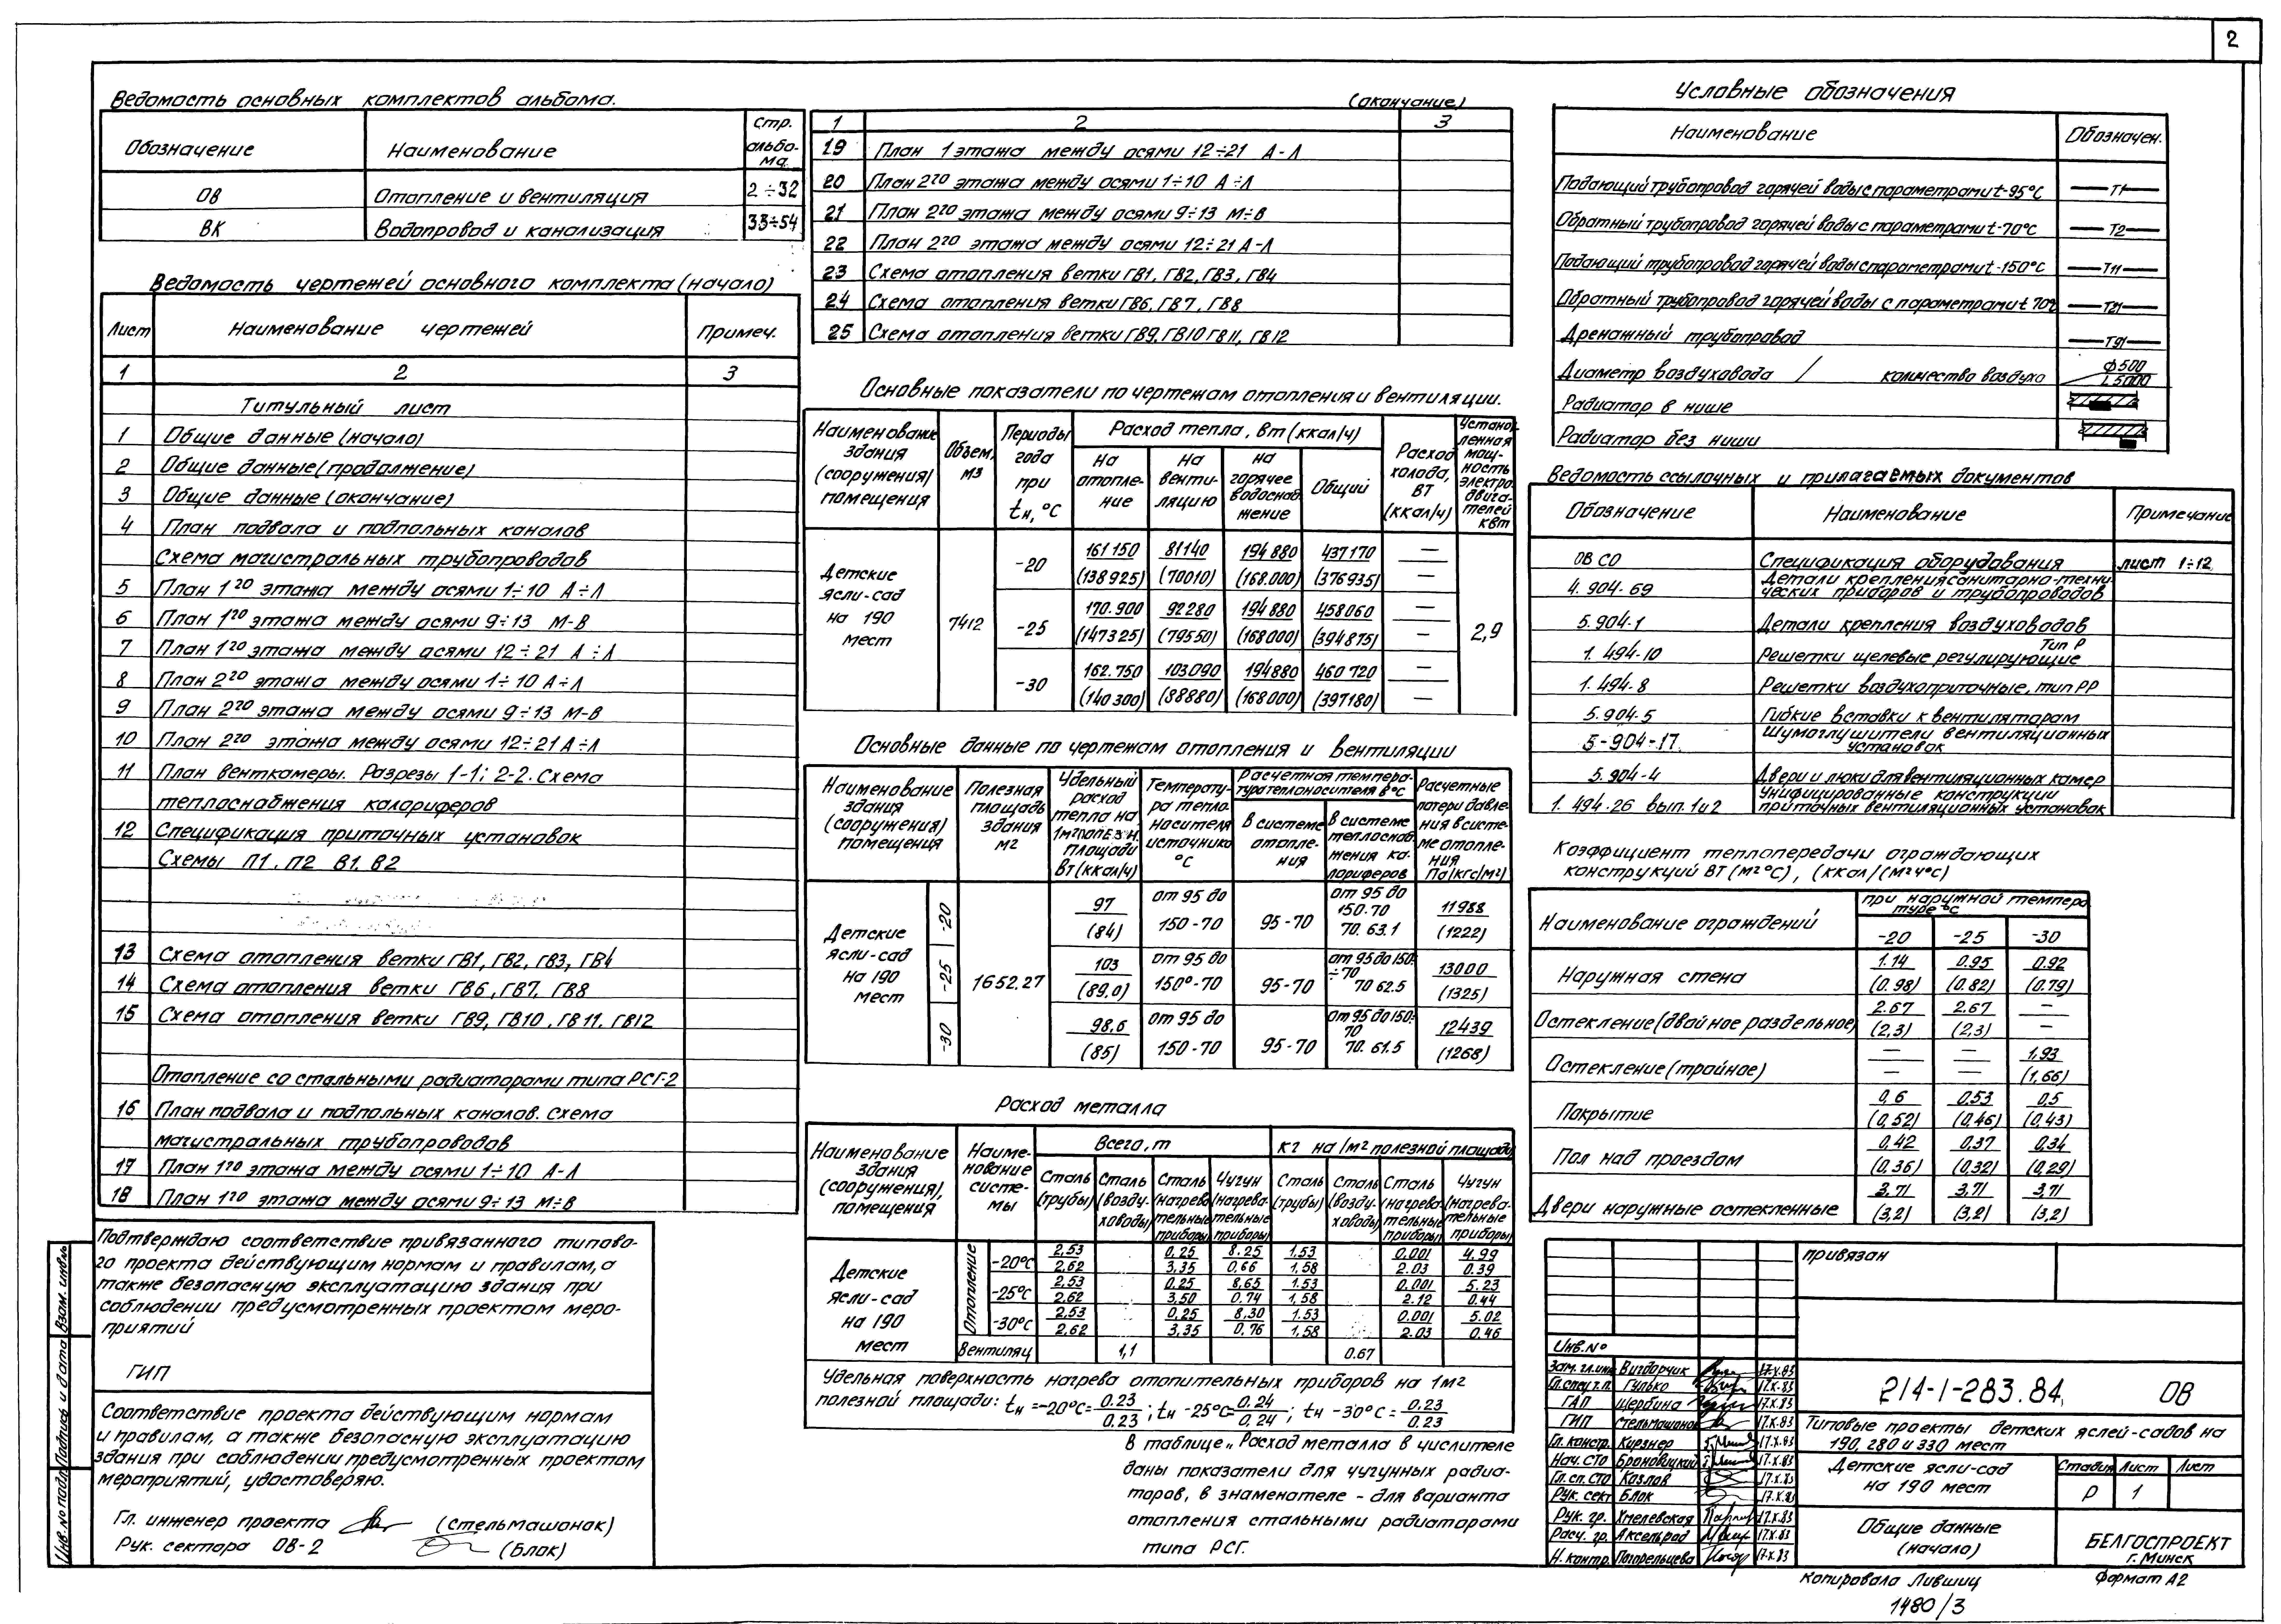 2
Ведомость основных комплектов альбома.
Обозначение Наименование Стр. альбо-ма
ОВ Отопление и вентиляция 2÷32
ВК Водопровод и канализация 33÷54
Ведомость чертежей основного комплекта (начало)
Лист Наименование чертежей Примеч.
1 2 3
Титульный лист
1 Общие данные (начало)
2 Общие данные (продолжение)
3 Общие данные (окончание)
4 План подвала и подпольных каналов
Схема магистральных трубопроводов
5 План 1го этажа между осями 1÷10 А÷Л
6 План 1го этажа между осями 9÷13 М-В
7 План 1го этажа между осями 12÷21 А÷Л
8 План 2го этажа между осями 1÷10 А÷Л
9 План 2го этажа между осями 9÷13 М-В
10 План 2го этажа между осями 12÷21 А÷Л
11 План венткамеры. Разрезы 1-1; 2-2. Схема
теплоснабжения калориферов
12 Спецификация приточных установок
Схемы П1, П2 В1, В2
13 Схема отопления ветки ГВ1, ГВ2, ГВ3, ГВ4
14 Схема отопления ветки ГВ6, ГВ7, ГВ8
15 Схема отопления ветки ГВ9, ГВ10, ГВ11, ГВ12
Отопление со стальными радиаторами типа РСГ-2
16 План подвала и подпольных каналов. Схема
магистральных трубопроводов
17 План 1го этажа между осями 1÷10 А-Л
18 План 1го этажа между осями 9÷13 М÷В
Подтверждаю соответствие привязанного типово-
го проекта действующим нормам и правилам, а
также безопасную эксплуатацию здания при
соблюдении предусмотренных проектом меро-
приятий
ГИП
Соответствие проекта действующим нормам
и правилам, а также безопасную эксплуатацию
здания при соблюдении предусмотренных проектом
мероприятий, удостоверяю.
Гл. инженер проекта (Стельмашонок)
Рук. сектора ОВ-2 (Блок)
Взам. инв№
Подпись и дата
Инв.№ подл.
(окончание)
1 2 3
19 План 1 этажа между осями 12÷21 А-Л
20 План 2го этажа между осями 1÷10 А÷Л
21 План 2го этажа между осями 9÷13 М÷В
22 План 2го этажа между осями 12÷21 А-Л
23 Схема отопления ветки ГВ1, ГВ2, ГВ3, ГВ4
24 Схема отопления ветки ГВ6, ГВ7, ГВ8
25 Схема отопления ветки ГВ9, ГВ10 ГВ11, ГВ12
Основные показатели по чертежам отопления и вентиляции.
Наименование здания (сооружения) помещения
Объем, м3
Периоды года при tн, °С
Расход тепла, Вт (ккал/ч)
На отопле-ние
На венти-ляцию
На горячее водоснаб жение
Общий
Расход холода, ВТ (ккал/ч)
Установ-ленная мощ-ность электро двига-телей кВт
Детские ясли-сад на 190 мест 7412 2,9
-20 161 150 81140 194 880 437170 —
(138925) (70010) (168.000) (376935) —
-25 170.900 92280 194 880 458060 —
(147325) (79550) (168000) (394875) —
-30 162.750 103090 194880 460 720 —
(140 300) (88880) (168000) (397180) —
Основные данные по чертежам отопления и вентиляции
Наименование здания (сооружения) помещения
Полезная площадь здания м2
Удельный расход тепла на 1м2 полезн. площади Вт (ккал/ч)
Температу-ра тепло носителя источника °С
Расчетная темпера-тура теплоносителя в °С
В системе отопле-ния
В системе теплоснаб жения ка-лориферов
Расчетные потери давле-ния в систе-ме отопле-ния Па (кгс/м2)
Детские ясли-сад на 190 мест 1652,27
-20 97 (84) от 95 до 150-70 95-70 от 95 до 150-70 70.63.1 11988 (1222)
-25 103 (89,0) от 95 до 150°-70 95-70 от 95 до 150÷70 70 62.5 13000 (1325)
-30 98,6 (85) от 95 до 150-70 95-70 от 95 до 150-70 70. 61.5 12439 (1268)
Расход металла
Наименование здания (сооружения), помещения
Наиме-нование систе-мы
Всего, т
кг на 1м2 полезной площади
Сталь (трубы) Сталь (возду-ховоды) Сталь (нагрева тельные приборы) Чугун (нагрева-тельные приборы)
Сталь (трубы) Сталь (возду-ховоды) Сталь (нагрева тельные приборы) Чугун (нагрева-тельные приборы)
Детские ясли-сад на 190 мест
Отопление
-20°С 2,53 0,25 8.25 1,53 0.001 4,99
2,62 3,35 0,66 1,58 2.03 0.39
-25°С 2,53 0,25 8,65 1.53 0.001 5.23
2,62 3,50 0,74 1,58 2.12 0.44
-30°С 2,53 0,25 8,30 1.53 0.001 5.02
2,62 3,35 0,76 1,58 2.03 0.46
Вентиляц 1,1 0.67
Удельная поверхность нагрева отопительных приборов на 1м2
полезной площади: tн =-20°С= 0.23/0.23 ; tн -25°С= 0.24/0,24 ; tн -30°С = 0.23/0.23
В таблице „Расход металла в числителе
даны показатели для чугунных радиа-
торов, в знаменателе - для варианта
отопления стальными радиаторами
типа РСГ.
Условные обозначения
Наименование Обозначен.
Подающий трубопровод горячей воды с параметрами t-95°С Т1
Обратный трубопровод горячей воды с параметрами t-70°С Т2
Подающий трубопровод горячей воды с параметрами t-150°С Т11
Обратный трубопровод горячей воды с параметрами t 70° Т21
Дренажный трубопровод Т91
Диаметр воздуховода / количество воздуха ф500 L5000
Радиатор в нише
Радиатор без ниши
Ведомость ссылочных и прилагаемых документов
Обозначение Наименование Примечание
ОВ СО Спецификация оборудования лист 1÷12
4.904-69 Детали крепления санитарно-техни-ческих приборов и трубопроводов
5.904-1 Детали крепления воздуховодов
1. 494-10 Решетки щелевые регулирующие Тип Р
1. 494-8 Решетки воздухоприточные, тип РР
5.904-5 Гибкие вставки к вентиляторам
5-904-17. Шумоглушители вентиляционных установок
5.904-4 Двери и люки для вентиляционных камер
1. 494-26 вып. 1 и 2 Унифицированные конструкции приточных вентиляционных установок
Коэффициент теплопередачи ограждающих
конструкций ВТ (м2°С), (ккал/(м2ч°С)
Наименование ограждений при наружной темпера туре °С
-20 -25 -30
Наружная стена 1.14 0.95 0.92
(0.98) (0.82) (0.79)
Остекление (двойное раздельное) 2.67 2.67 —
(2,3) (2,3) —
Остекление (тройное) — — 1,93
— — (1,66)
Покрытие 0,6 0,53 0,5
(0,52) (0,46) (0,43)
Пол над проездом 0,42 0,37 0,34
(0,36) (0,32) (0,29)
Двери наружные остекленные 3,71 3,71 3,71
(3,2) (3,2) (3,2)
привязан
Инв.№
Зам. гл.инж. Вигдорчик 17.X.83
Гл.спец.т.п. Гулько 17.X.83
ГАП Щербина 17.X.83
ГИП Стельмашонок 17.X.83
Гл. констр. Кирзнер 17.X.83
Нач. СТО Броновицкий 17.X.83
Гл. сп. СТО Козлов 17.X.83
Рук. сект Блок 17.X.83
Рук. гр. Хмелевская 17.X.83
Расч. гр. Аксельрод 17.X.83
Н. контр. Погорельцева 17.X.83
214-1-283.84. ОВ
Типовые проекты детских яслей-садов на
190, 280 и 330 мест
Детские ясли-сад
на 190 мест
Стадия Лист Лист
Р 1
Общие данные
(начало)
БЕЛГОСПРОЕКТ
г. Минск
Копировала Лившиц
Формат А2
1480/3